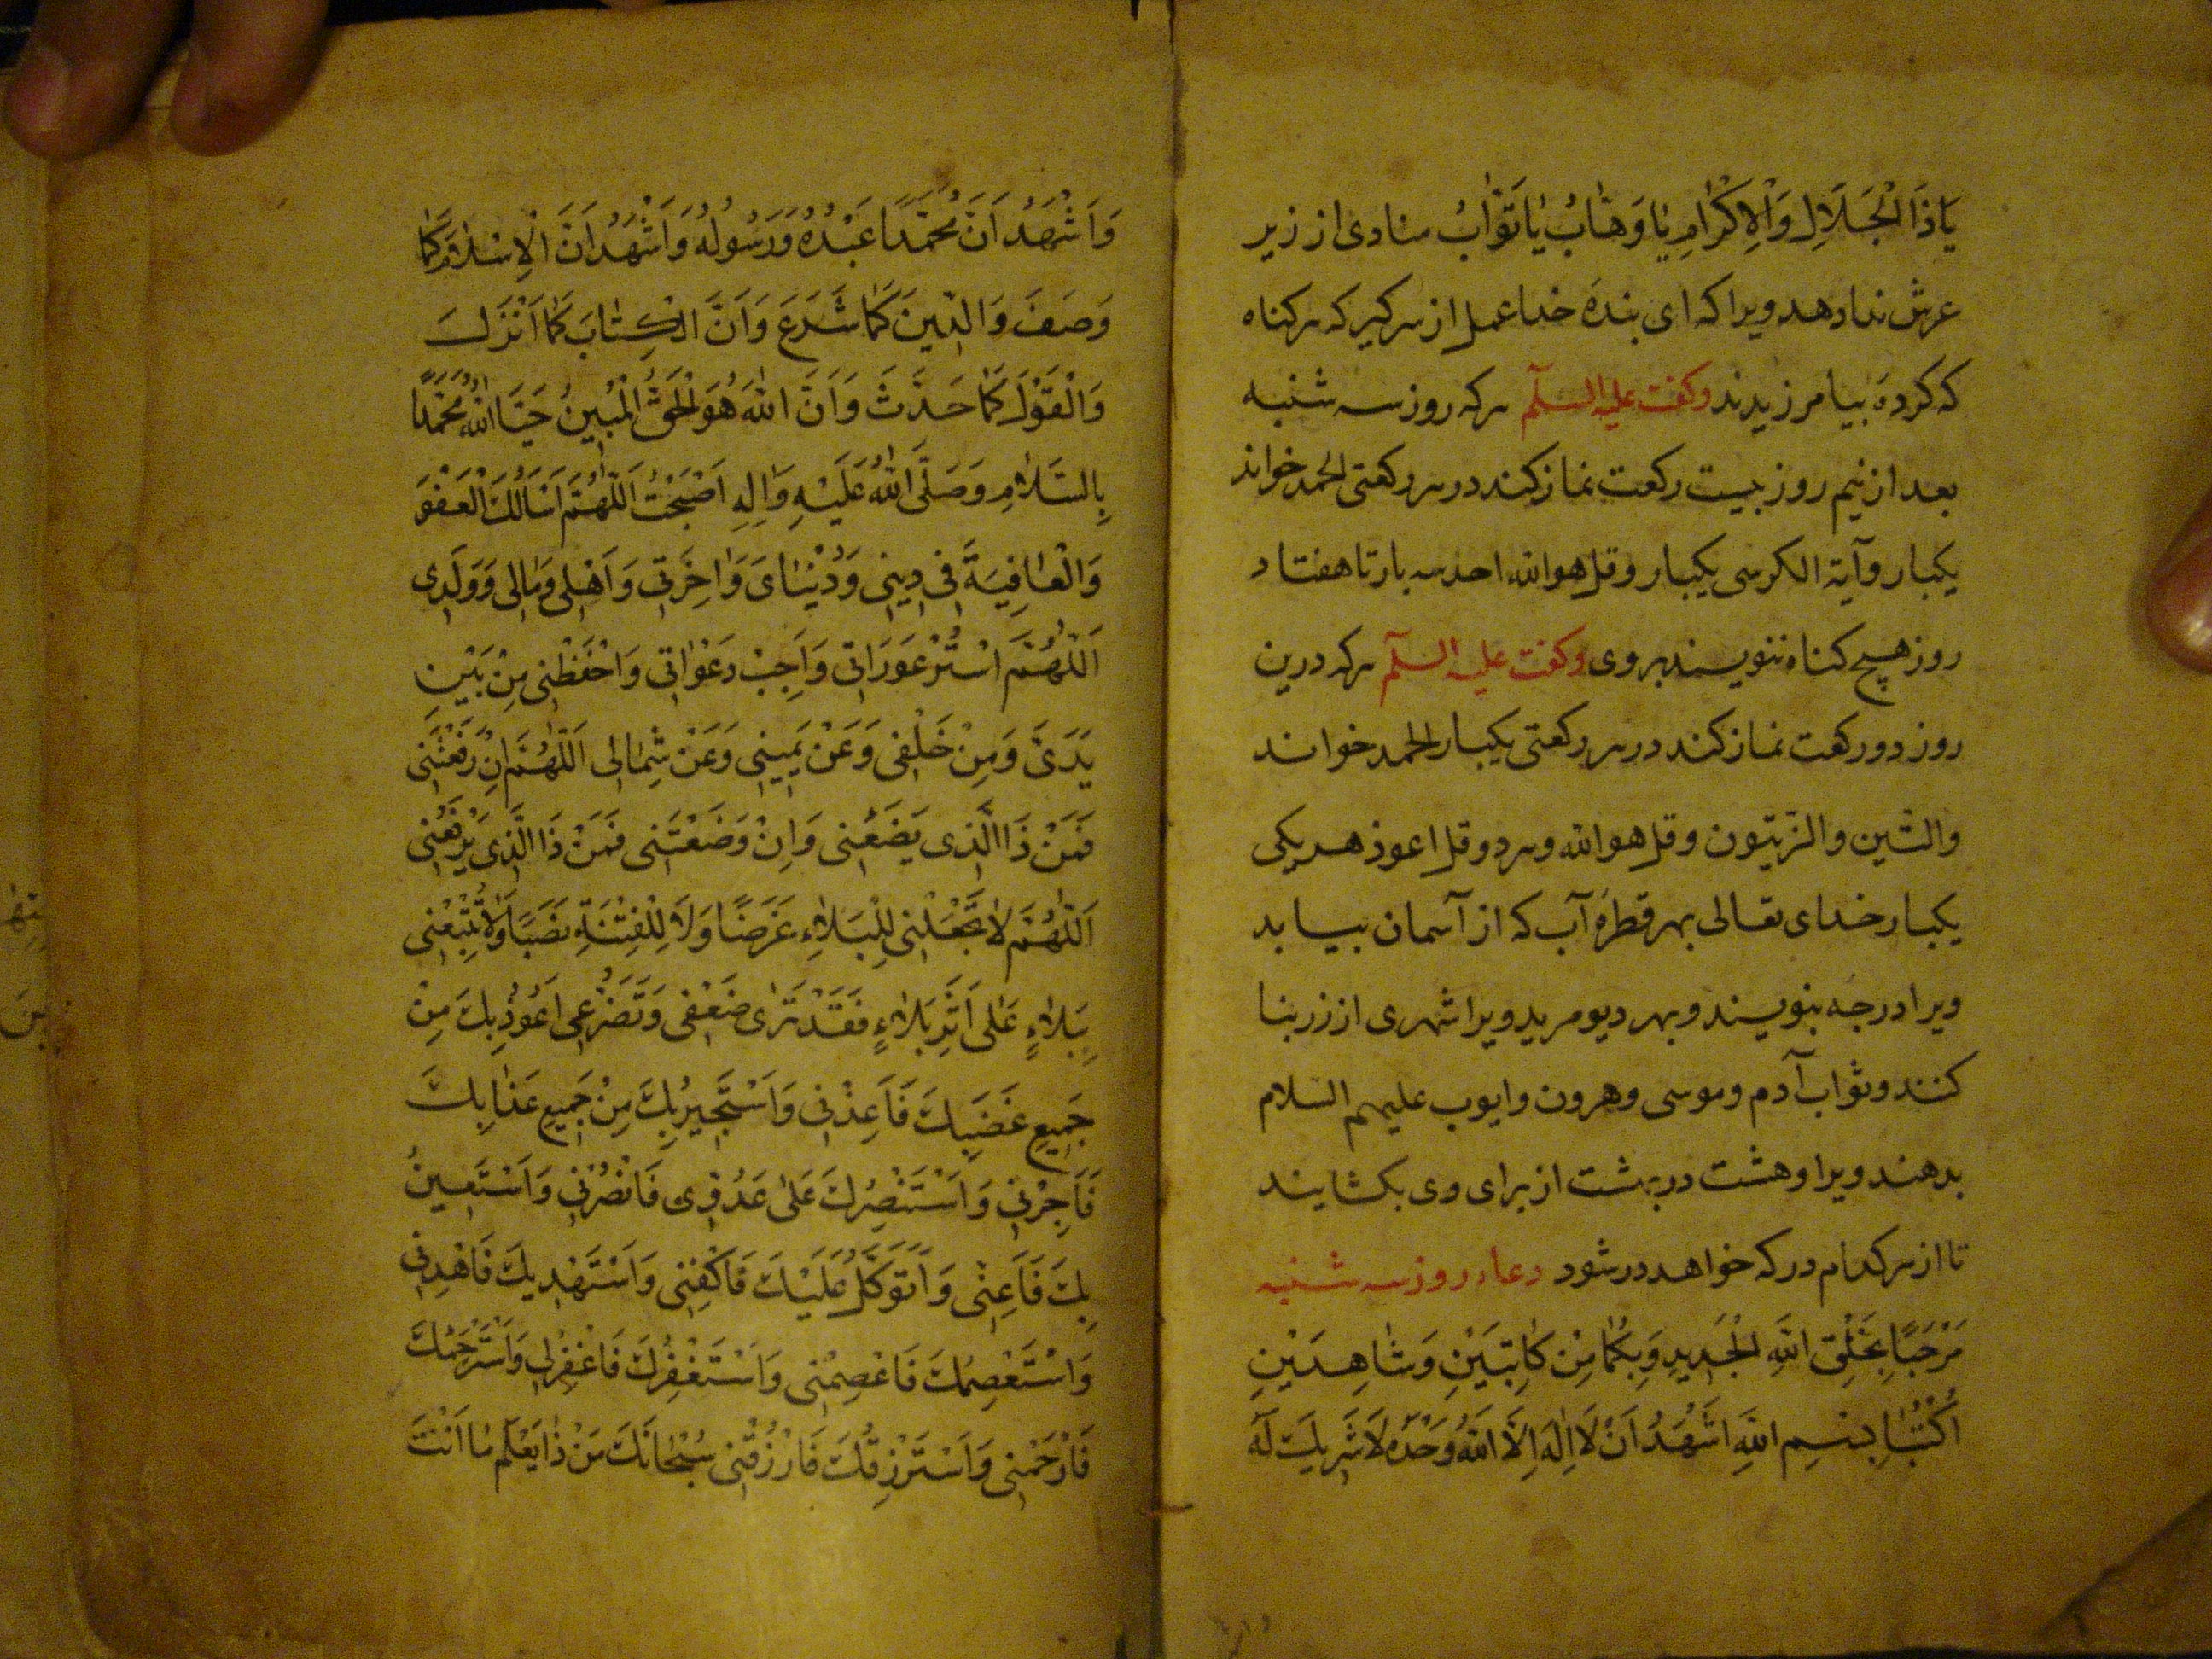 يَا ذَا الْجَلَالِ وَالْاِكْرَامِ يَا وَهَّابُ يَا تَوَّابُ منادی از زیر
عرش ندا دهد ویرا که ای بندهٔ خدا عمل از سر کیر که هر کناه
که کردهٔ بیامرزیدند وکفت علیه السلم هرکه روز سه شنبه
بعد از نیم روز بیست رکعت نماز کند در هر رکعتی الحمد خواند
یکبار و آیة الکرسی یکبار و قل هو الله احد سه بار تا هفتاد
روز هیچ کناه ننویسند بر وی وکفت علیه السلم هرکه درین
روز دو رکعت نماز کند در هر رکعتی یکبار الحمد خواند
والتین والزیتون و قل هو الله و هر دو قل اعوذ هر یکی
یکبار خدای تعالی بهر قطرهٔ آب که از آسمان بیاید
ویرا درجه بنویسند و بهر دیو مرید ویرا شهری از زر بنا
کنند و ثواب آدم و موسی و هرون و ایوب علیهم السلام
بدهند ویرا و هشت در بهشت از برای وی بکشایند
تا از هر کدام در که خواهد در شود دعاء روز سه شنبه
مَرْحَبًا بِخَلْقِ اللّٰهِ الْجَدِيدِ وَبِكُمَا مِنْ كَاتِبَيْنِ وَشَاهِدَيْنِ
اُكْتُبَا بِسْمِ اللّٰهِ اَشْهَدُ اَنْ لَا اِلٰهَ اِلَّا اللّٰهُ وَحْدَهُ لَا شَرِيكَ لَهُ
وَاَشْهَدُ اَنَّ مُحَمَّدًا عَبْدُهُ وَرَسُولُهُ وَاَشْهَدُ اَنَّ الْاِسْلَامَ كَمَا
وَصَفَ وَالدِّينَ كَمَا شَرَعَ وَاَنَّ الْكِتَابَ كَمَا اَنْزَلَ
وَالْقَوْلَ كَمَا حَدَّثَ وَاَنَّ اللّٰهَ هُوَ الْحَقُّ الْمُبِينُ حَيَّا اللّٰهُ مُحَمَّدًا
بِالسَّلَامِ وَصَلَّى اللّٰهُ عَلَيْهِ وَاٰلِهِ اَصْبَحْتُ اَللّٰهُمَّ اَسْاَلُكَ الْعَفْوَ
وَالْعَافِيَةَ فِي دِينِي وَدُنْيَايَ وَاٰخِرَتِي وَاَهْلِي وَمَالِي وَوَلَدِي
اَللّٰهُمَّ اسْتُرْ عَوْرَاتِي وَاَجِبْ دَعَوَاتِي وَاحْفَظْنِي مِنْ بَيْنِ
يَدَيَّ وَمِنْ خَلْفِي وَعَنْ يَمِينِي وَعَنْ شِمَالِي اَللّٰهُمَّ اِنْ رَفَعْتَنِي
فَمَنْ ذَا الَّذِي يَضَعُنِي وَاِنْ وَضَعْتَنِي فَمَنْ ذَا الَّذِي يَرْفَعُنِي
اَللّٰهُمَّ لَا تَجْعَلْنِي لِلْبَلَاءِ غَرَضًا وَلَا لِلْفِتْنَةِ نَصَبًا وَلَا تُتْبِعْنِي
بِبَلَاءٍ عَلَى اَثَرِ بَلَاءٍ فَقَدْ تَرٰى ضَعْفِي وَتَضَرُّعِي اَعُوذُ بِكَ مِنْ
جَمِيعِ غَضَبِكَ فَاَعِذْنِي وَاَسْتَجِيرُ بِكَ مِنْ جَمِيعِ عَذَابِكَ
فَاَجِرْنِي وَاَسْتَنْصِرُكَ عَلٰى عَدُوِّي فَانْصُرْنِي وَاَسْتَعِينُ
بِكَ فَاَعِنِّي وَاَتَوَكَّلُ عَلَيْكَ فَاكْفِنِي وَاَسْتَهْدِيكَ فَاهْدِنِي
وَاَسْتَعْصِمُكَ فَاعْصِمْنِي وَاَسْتَغْفِرُكَ فَاغْفِرْ لِي وَاَسْتَرْحِمُكَ
فَارْحَمْنِي وَاَسْتَرْزِقُكَ فَارْزُقْنِي سُبْحَانَكَ مَنْ ذَا يَعْلَمُ مَا اَنْتَ